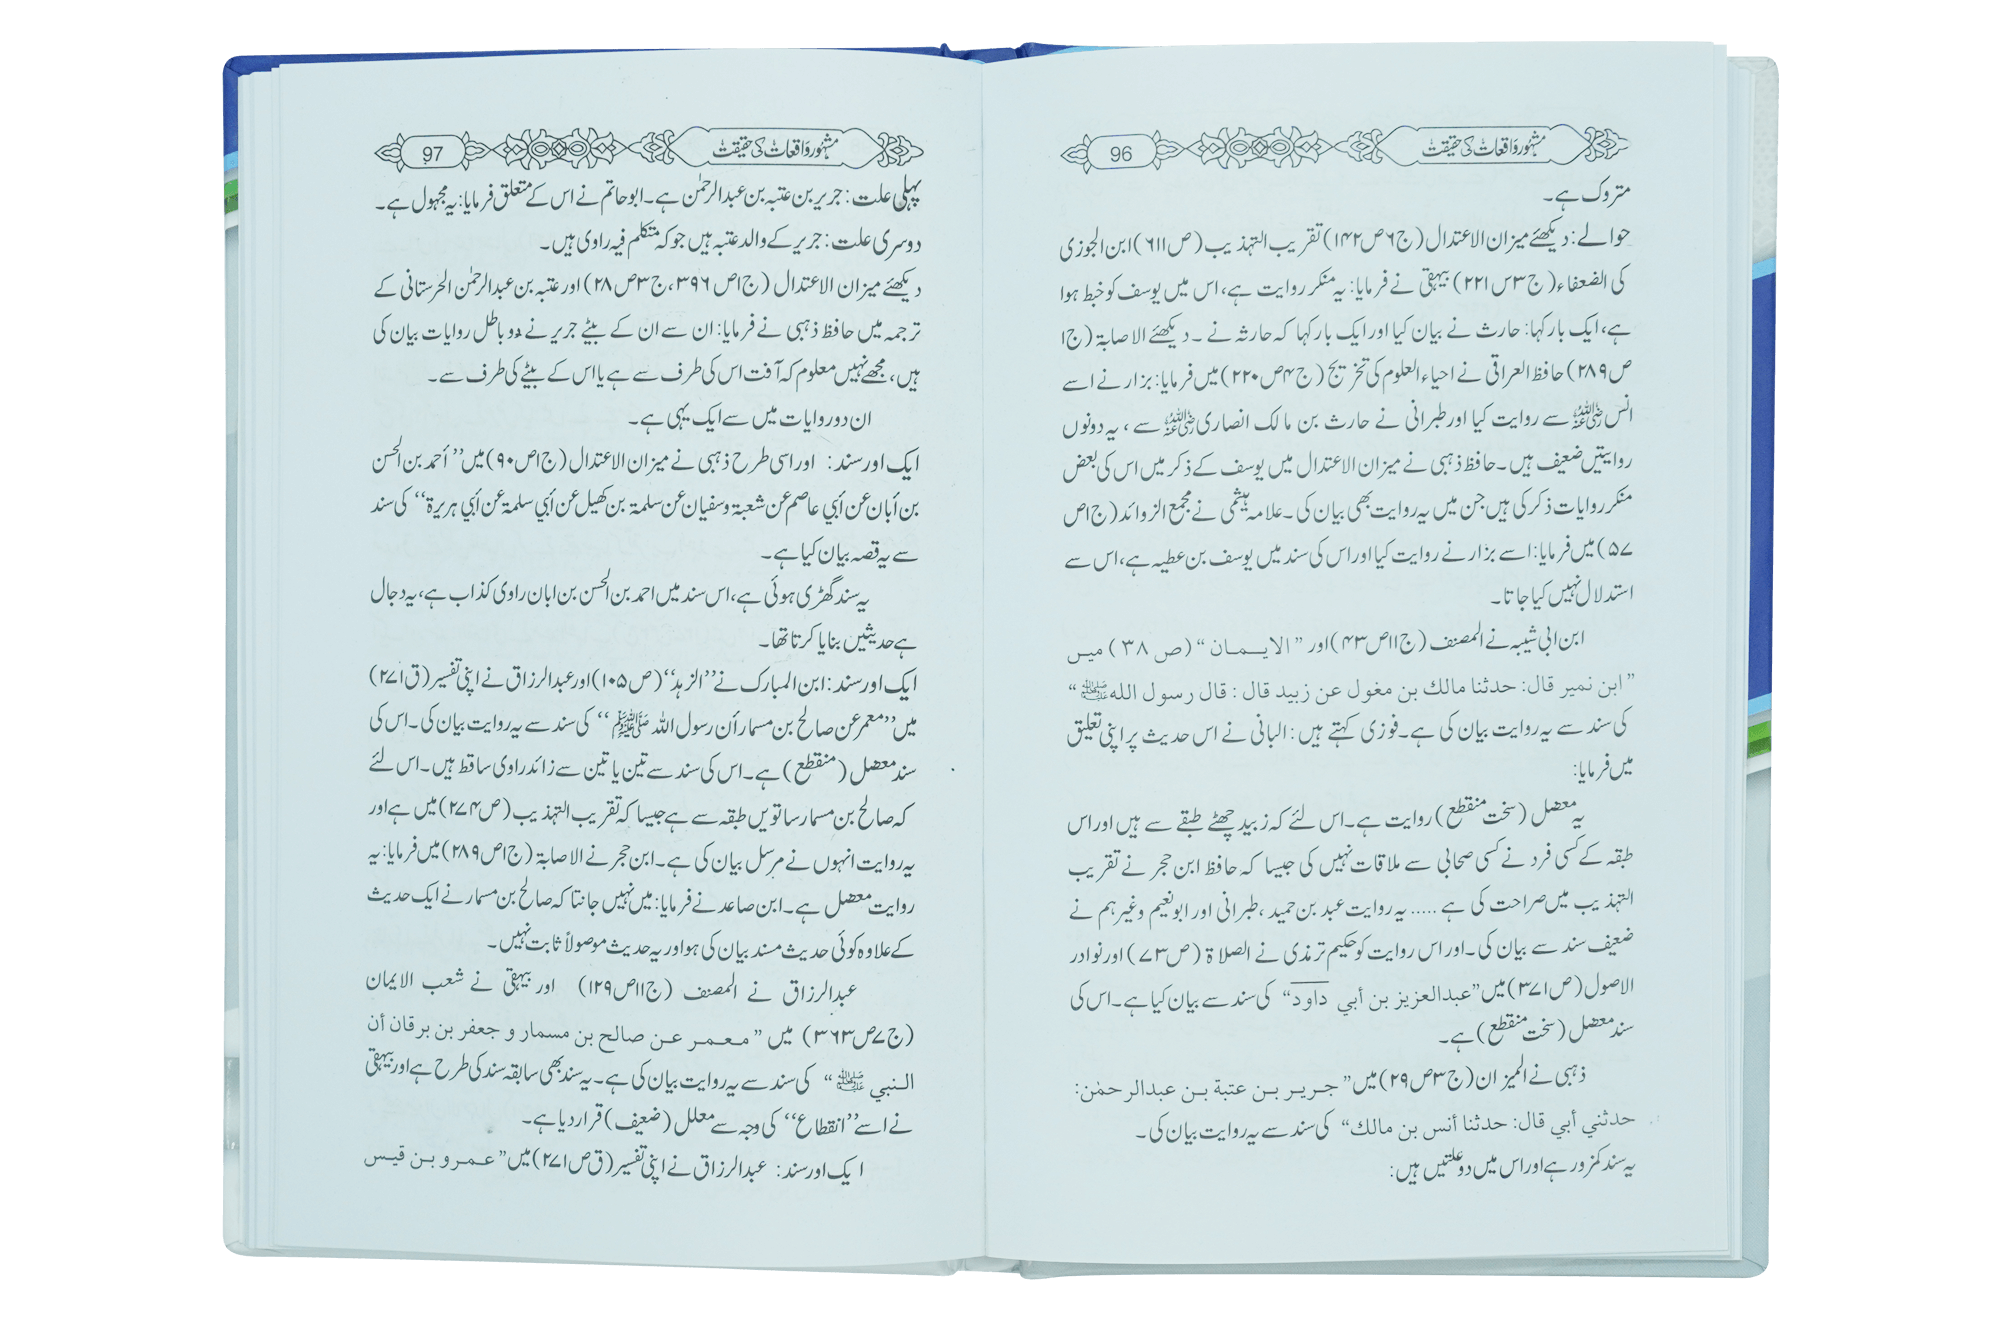 مشہور واقعات کی حقیقت 96
متروک ہے۔
حوالے: دیکھئے میزان الاعتدال (ج۶ص۱۴۲) تقریب التہذیب (ص۶۱۱) ابن الجوزی
کی الضعفاء (ج۳س۲۲۱) بیہقی نے فرمایا: یہ منکر روایت ہے، اس میں یوسف کو خبط ہوا
ہے، ایک بار کہا: حارث نے بیان کیا اور ایک بار کہا کہ حارثہ نے ۔ دیکھئے الاصابۃ (ج۱
ص۲۸۹) حافظ العراقی نے احیاء العلوم کی تخریج (ج۴ص۲۲۰) میں فرمایا: بزار نے اسے
انس رضی اللہ عنہ سے روایت کیا اور طبرانی نے حارث بن مالک انصاری رضی اللہ عنہ سے، یہ دونوں
روایتیں ضعیف ہیں۔ حافظ ذہبی نے میزان الاعتدال میں یوسف کے ذکر میں اس کی بعض
منکر روایات ذکر کی ہیں جن میں یہ روایت بھی بیان کی۔ علامہ ہیثمی نے مجمع الزوائد (ج۱ص
۵۷) میں فرمایا: اسے بزار نے روایت کیا اور اس کی سند میں یوسف بن عطیہ ہے، اس سے
استدلال نہیں کیا جاتا۔
ابن ابی شیبہ نے المصنف (ج۱۱ص۴۳) اور ”الایمان“ (ص۳۸) میں
”ابن نمير قال: حدثنا مالك بن مغول عن زبيد قال: قال رسول الله ﷺ“
کی سند سے یہ روایت بیان کی ہے۔ فوزی کہتے ہیں: البانی نے اس حدیث پر اپنی تعلیق
میں فرمایا:
یہ معضل (سخت منقطع) روایت ہے۔ اس لئے کہ زبید چھٹے طبقے سے ہیں اور اس
طبقہ کے کسی فرد نے کسی صحابی سے ملاقات نہیں کی جیسا کہ حافظ ابن حجر نے تقریب
التہذیب میں صراحت کی ہے ..... یہ روایت عبد بن حمید، طبرانی اور ابونعیم وغیرہم نے
ضعیف سند سے بیان کی۔ اور اس روایت کو حکیم ترمذی نے الصلاۃ (ص۷۳) اور نوادر
الاصول (ص۳۷۱) میں ”عبدالعزیز بن أبي داود“ کی سند سے بیان کیا ہے۔ اس کی
سند معضل (سخت منقطع) ہے۔
ذہبی نے المیزان (ج۳ص۲۹) میں ”جریر بن عتبة بن عبدالرحمٰن:
حدثني أبي قال: حدثنا أنس بن مالك“ کی سند سے یہ روایت بیان کی۔
یہ سند کمزور ہے اور اس میں دو علتیں ہیں:
مشہور واقعات کی حقیقت 97
پہلی علت: جریر بن عتبہ بن عبدالرحمٰن ہے۔ ابوحاتم نے اس کے متعلق فرمایا: یہ مجہول ہے۔
دوسری علت: جریر کے والد عتبہ ہیں جو کہ متکلم فیہ راوی ہیں۔
دیکھئے میزان الاعتدال (ج۱ص۳۹۶، ج۳ص۲۸) اور عتبہ بن عبدالرحمٰن الحرستانی کے
ترجمہ میں حافظ ذہبی نے فرمایا: ان سے ان کے بیٹے جریر نے دو باطل روایات بیان کی
ہیں، مجھے نہیں معلوم کہ آفت اس کی طرف سے ہے یا اس کے بیٹے کی طرف سے۔
ان دو روایات میں سے ایک یہی ہے۔
ایک اور سند: اور اسی طرح ذہبی نے میزان الاعتدال (ج۱ص۹۰) میں ”أحمد بن الحسن
بن أبان عن أبي عاصم عن شعبة وسفيان عن سلمة بن كهيل عن أبي سلمة عن أبي هريرة“ کی سند
سے یہ قصہ بیان کیا ہے۔
یہ سند گھڑی ہوئی ہے، اس سند میں احمد بن الحسن بن ابان راوی کذاب ہے، یہ دجال
ہے حدیثیں بنایا کرتا تھا۔
ایک اور سند: ابن المبارک نے ”الزہد“ (ص۱۰۵) اور عبدالرزاق نے اپنی تفسیر (ق۲۷۱)
میں ”معمر عن صالح بن مسمار أن رسول الله ﷺ“ کی سند سے یہ روایت بیان کی۔ اس کی
سند معضل (منقطع) ہے۔ اس کی سند سے تین یا تین سے زائد راوی ساقط ہیں۔ اس لئے
کہ صالح بن مسمار ساتویں طبقہ سے ہے جیسا کہ تقریب التہذیب (ص۲۷۴) میں ہے اور
یہ روایت انہوں نے مرسل بیان کی ہے۔ ابن حجر نے الاصابۃ (ج۱ص۲۸۹) میں فرمایا: یہ
روایت معضل ہے۔ ابن صاعد نے فرمایا: میں نہیں جانتا کہ صالح بن مسمار نے ایک حدیث
کے علاوہ کوئی حدیث مسند بیان کی ہو اور یہ حدیث موصولاً ثابت نہیں۔
عبدالرزاق نے المصنف (ج۱۱ص۱۲۹) اور بیہقی نے شعب الایمان
(ج۷ص۳۶۳) میں ”معمر عن صالح بن مسمار و جعفر بن برقان أن
النبي ﷺ“ کی سند سے یہ روایت بیان کی ہے۔ یہ سند بھی سابقہ سند کی طرح ہے اور بیہقی
نے اسے ”انقطاع“ کی وجہ سے معلل (ضعیف) قرار دیا ہے۔
ایک اور سند: عبدالرزاق نے اپنی تفسیر (ق ص۲۷۱) میں ”عمرو بن قیس